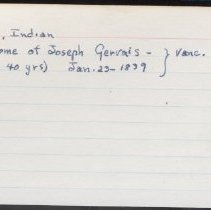 , Indian
ome of Joseph Gervais - } Vanc.
40 yrs) Jan. 23 - 1839